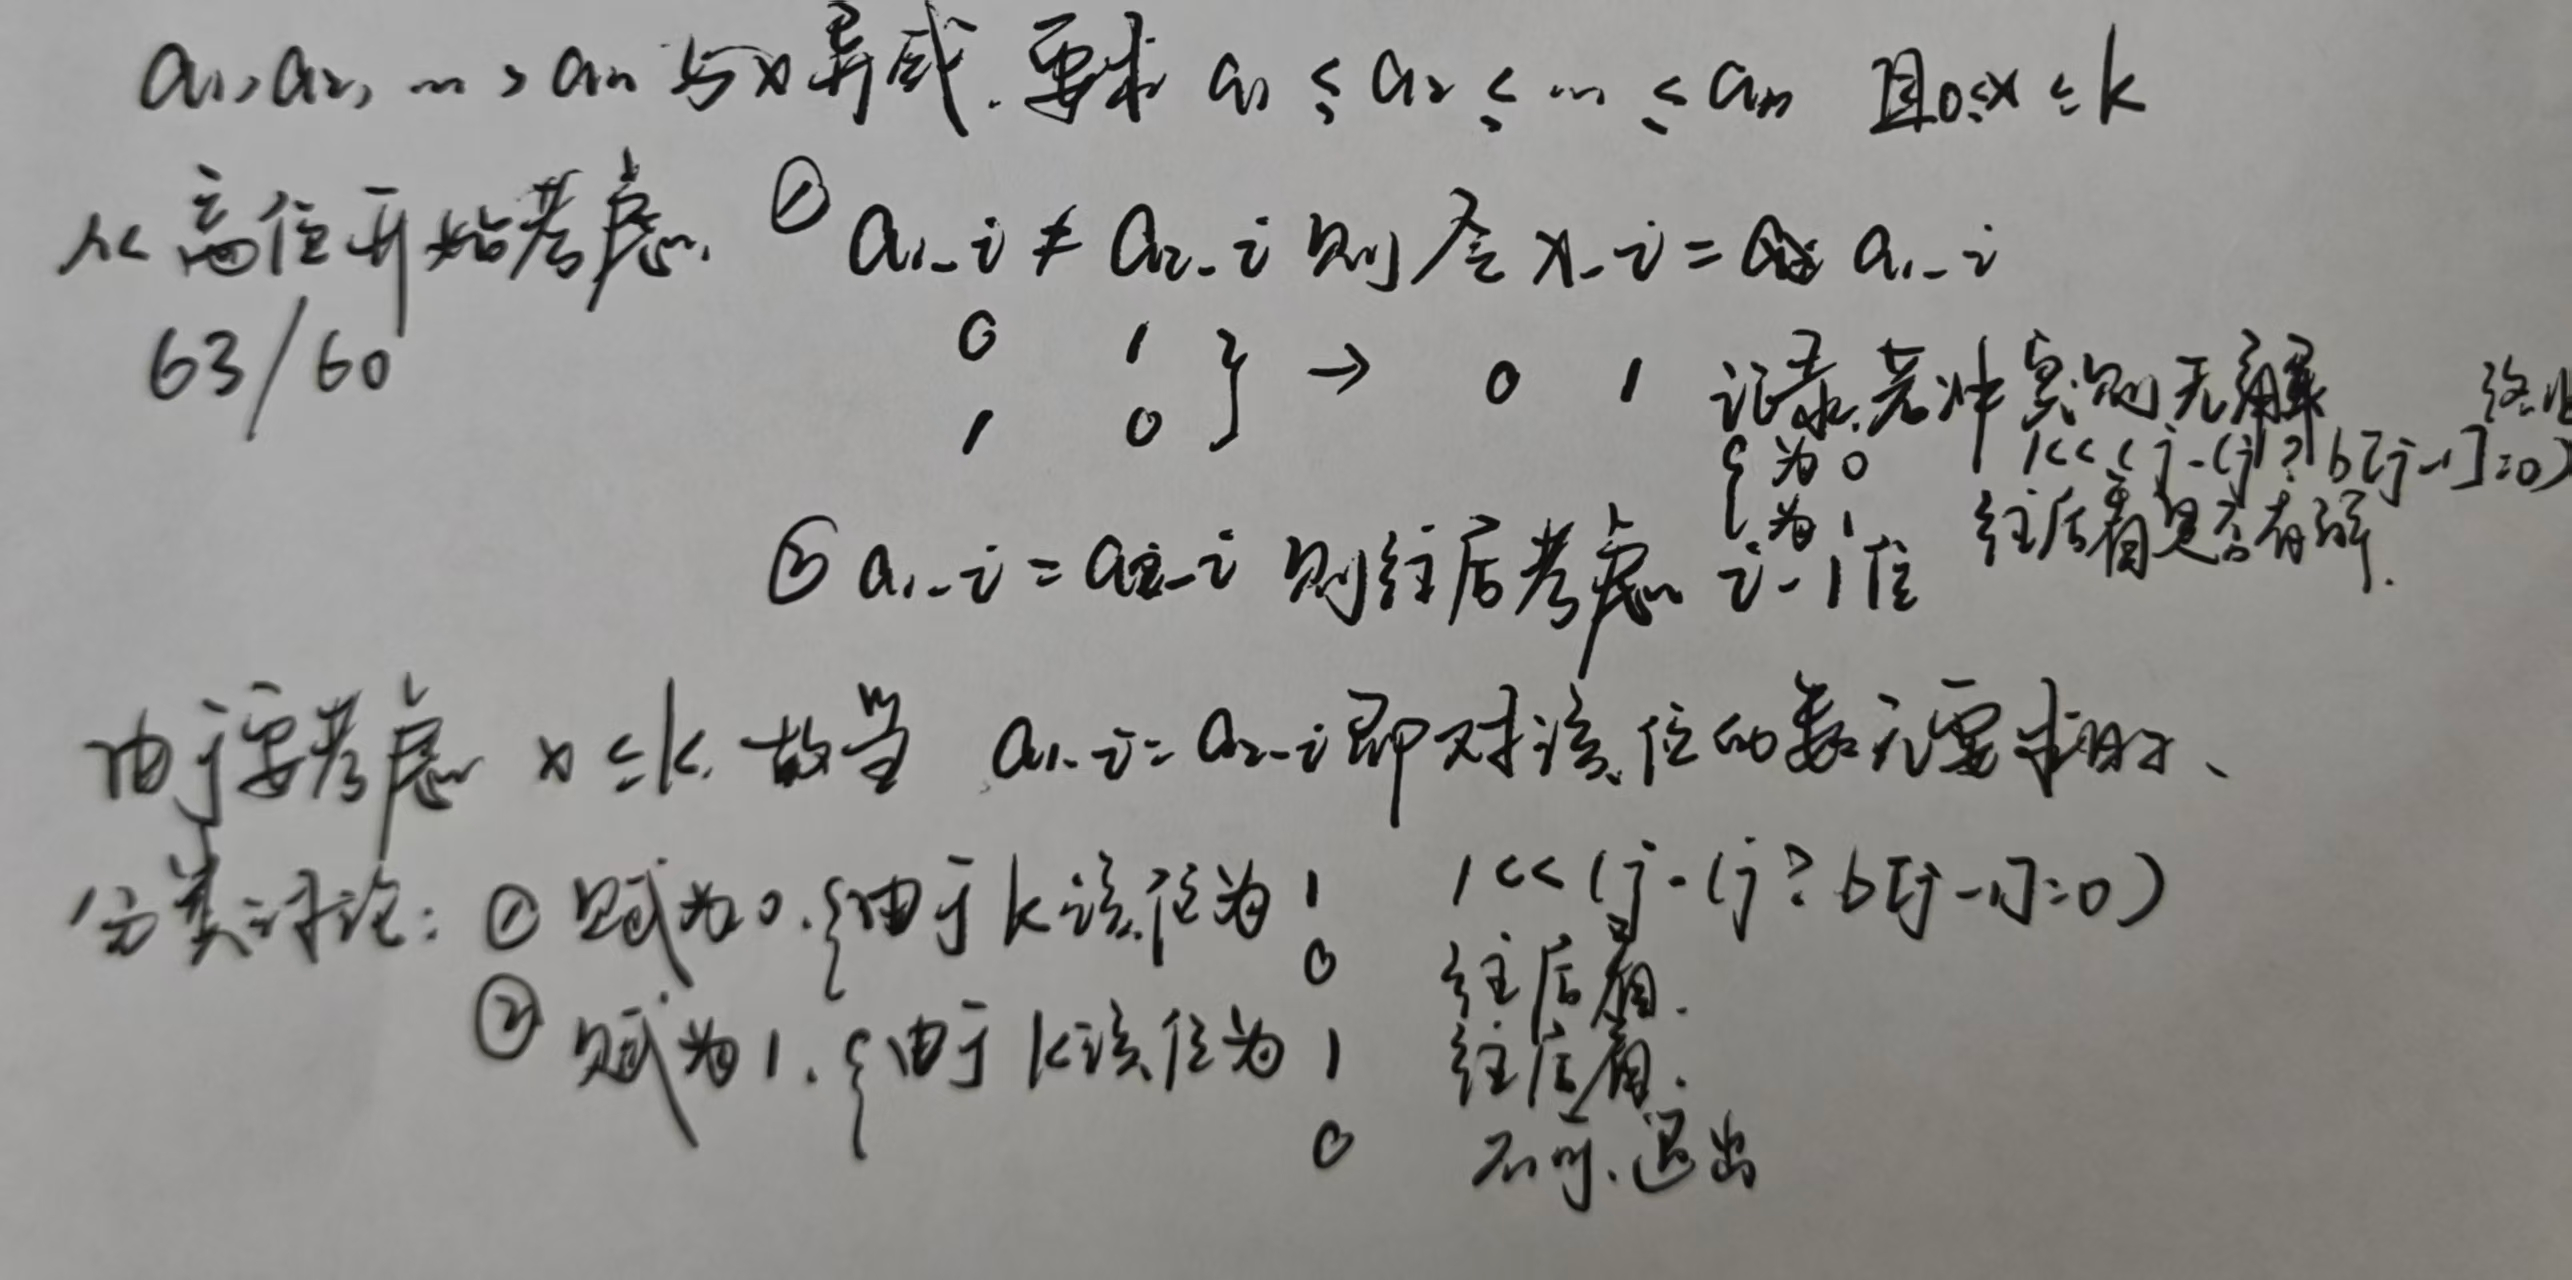 a₁, a₂, …, aₙ 与x异或. 要求 a₁ ≤ a₂ ≤ … ≤ aₙ 且0≤x≤k
从高位开始考虑. ① a₁_i ≠ a₂_i 则令 x_i = a₁_i
63/60
0 1 } → 0 1 记录,若冲突则无解
1 0
{ 为0 1<<(j-(j?b[j-1]:0)
为1 往后看是否有解.
② a₁_i = a₂_i 则往后考虑 i-1位
由于要考虑 x≤k. 故当 a₁_i = a₂_i 即对该位的数无要求时、
分类讨论: ① 赋为0. { 由于k该位为 1 1<<(j-(j?b[j-1]:0)
0 往后看.
② 赋为1. { 由于k该位为 1 往后看.
0 不可.退出